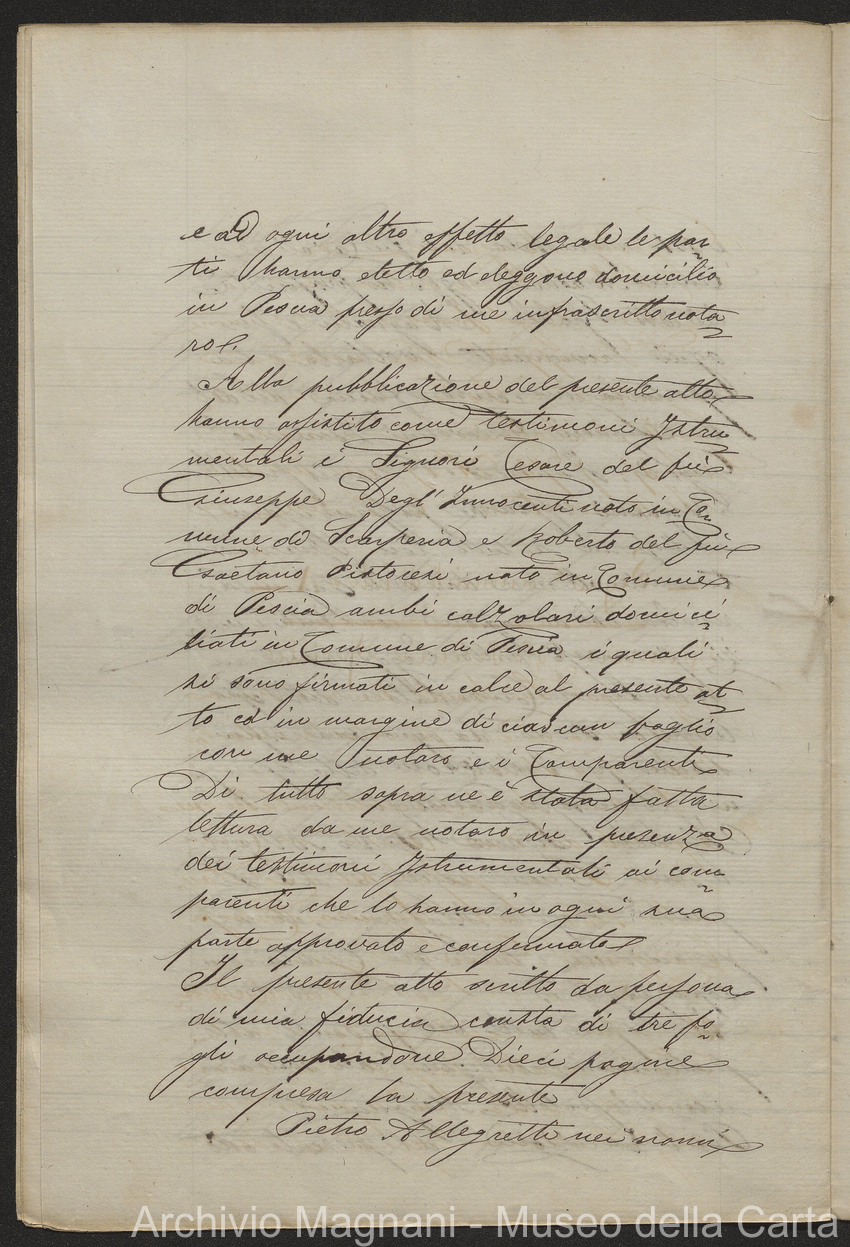 e ad ogni altro effetto legale le par
ti hanno eletto ed eleggono domicilio
in Pescia presso di me infrascritto nota
ro.
Alla pubblicazione del presente atto
hanno assistito come testimoni Istru
mentali i Signori Cesare del fù
Giuseppe Degl'Innocenti nato in Co
mune di Scarperia e Roberto del fù
Gaetano Pistoresi nato in Comune
di Pescia ambi calzolari domici
liati in Comune di Pescia i quali
si sono firmati in calce al presente at
to ed in margine di ciascun foglio
con me notaro e i Comparenti
Di tutto sopra ne è stata fatta
lettura da me notaro in presenza
dei testimoni Istrumentali ai com
parenti che lo hanno in ogni sua
parte approvato e confermato
Il presente atto scritto da persona
di mia fiducia consta di tre fo
gli occupandone Dieci pagine
compresa la presente
Pietro Allegretti nei nomi
Archivio Magnani - Museo della Carta